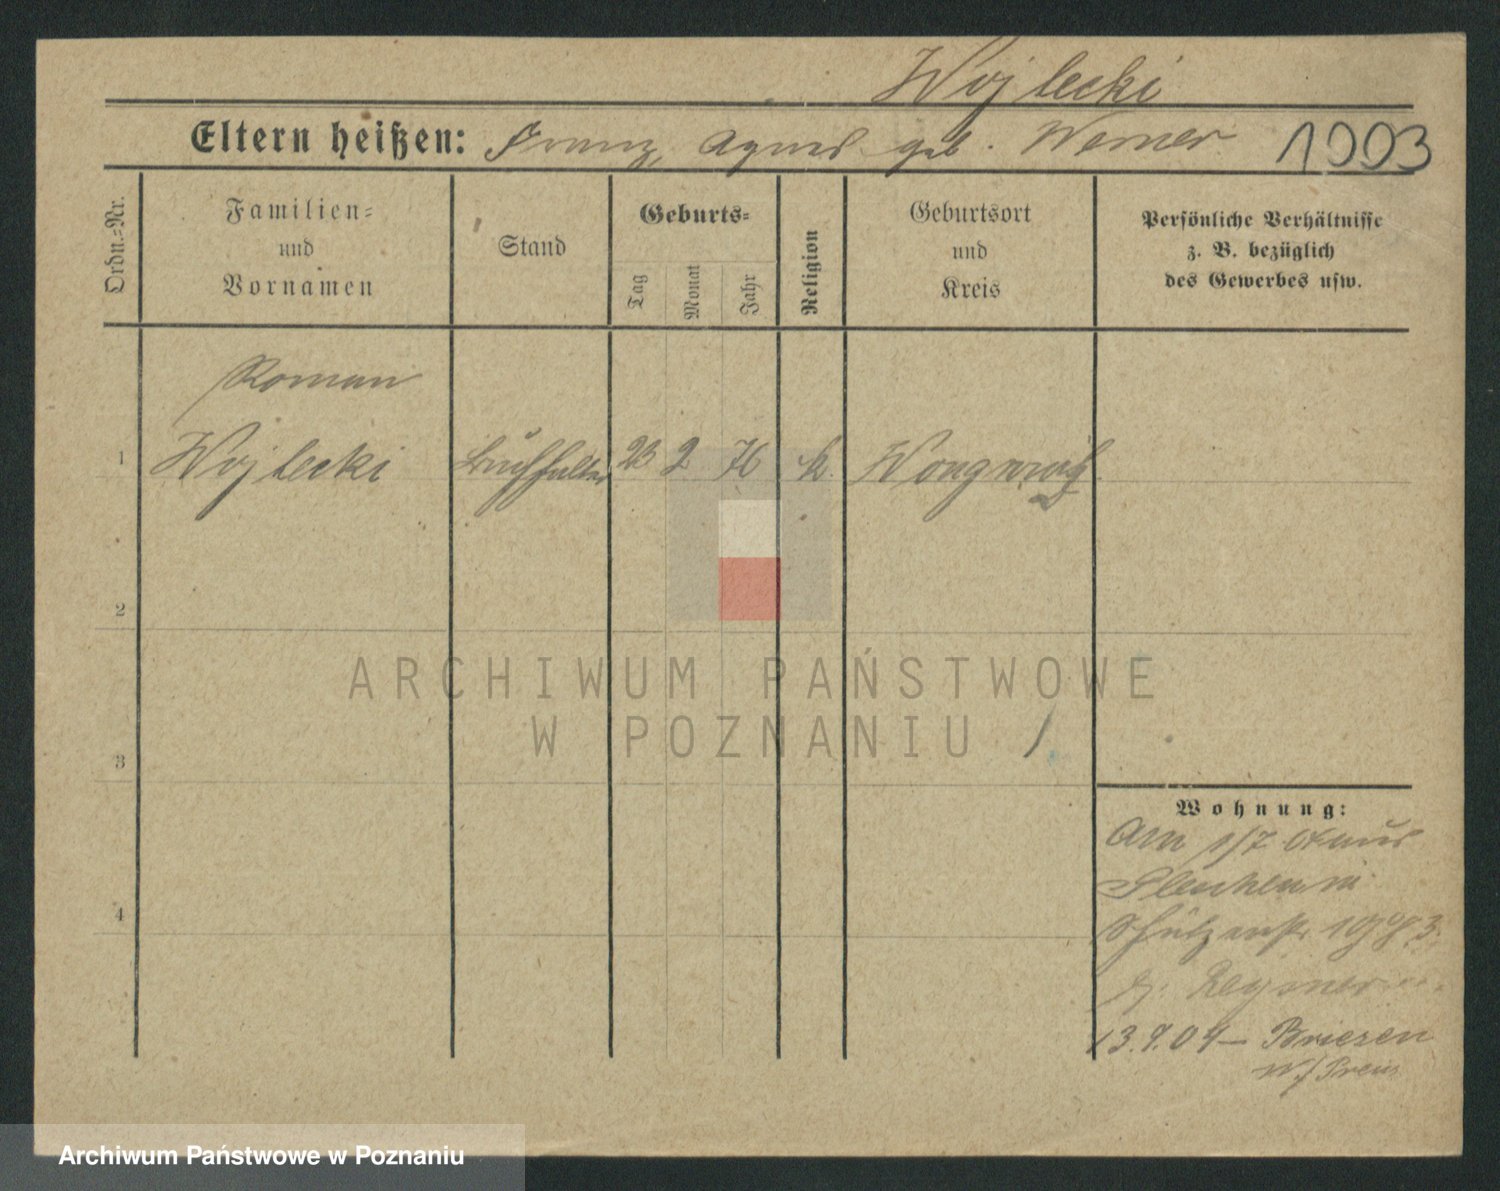 Wojtecki
Eltern heißen: Franz, Agnes geb. Werner 1903
Ordn.-Nr.
Familien-
und
Vornamen
Stand
Geburts-
Tag
Monat
Jahr
Religion
Geburtsort
und
Kreis
Persönliche Verhältnisse
z. B. bezüglich
des Gewerbes usw.
Roman
1 Wojtecki Buchhalter 23 2 76 k. Wongrowitz
2
3
4
ARCHIWUM PAŃSTWOWE
W POZNANIU
Wohnung:
Am 1/7 03 aus
Pleschen in
Schützenstr
13.9.04 – Briesen
W/Preus
Archiwum Państwowe w Poznaniu